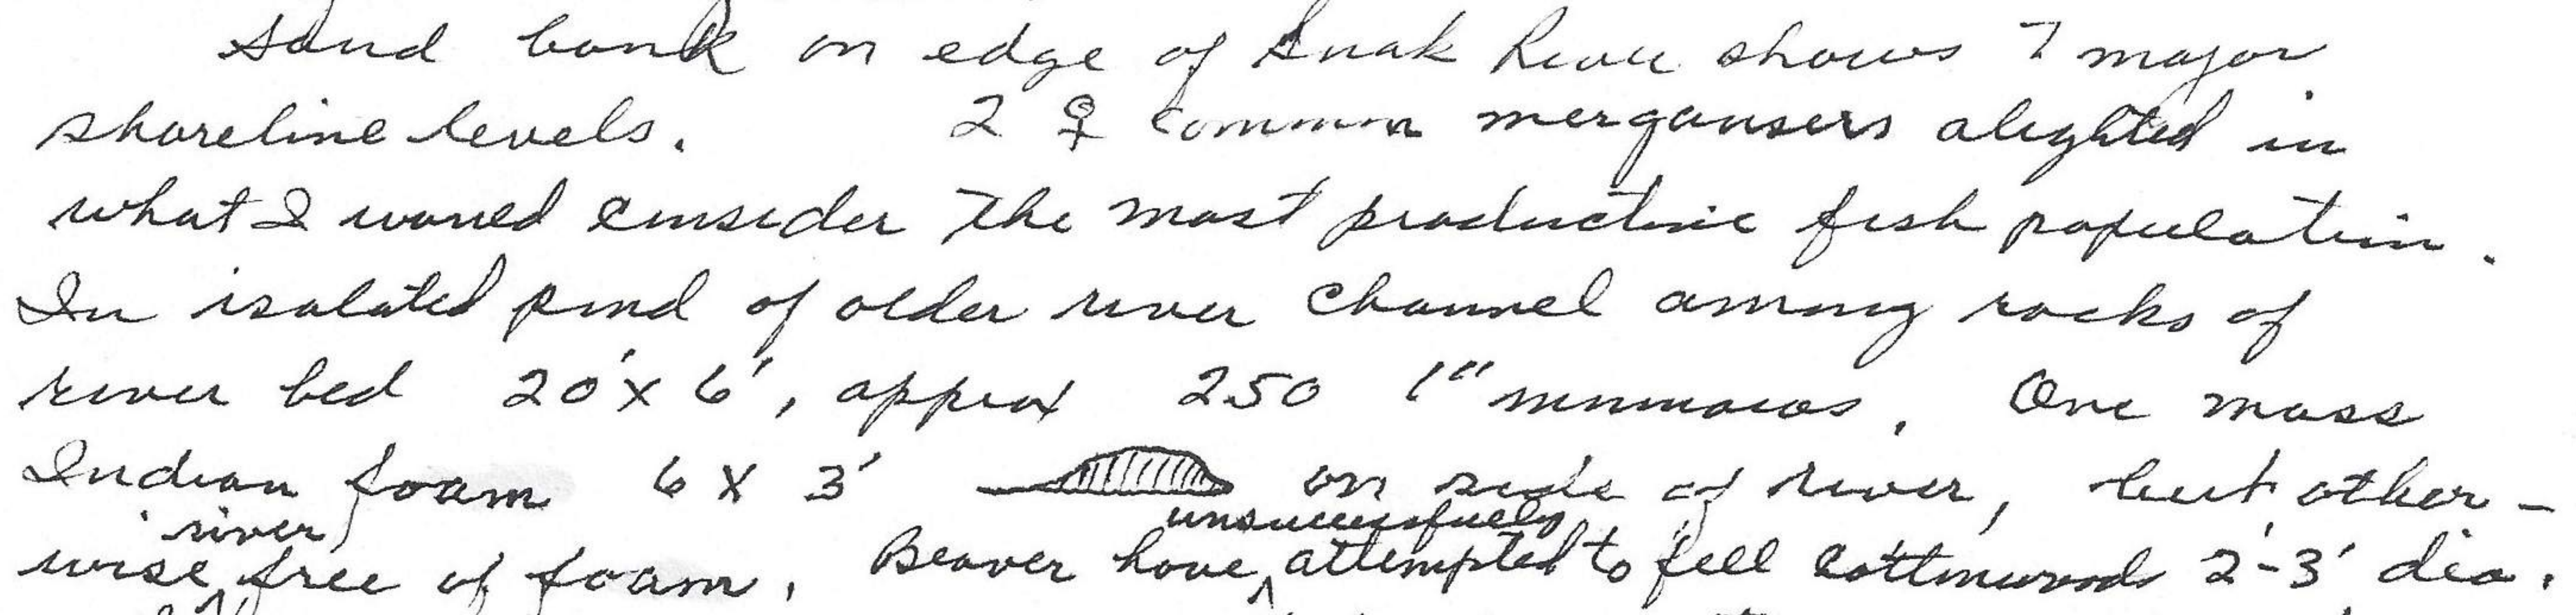 Sand bank on edge of Snak River shows 7 major
shoreline levels. 2 ♀ common mergansers alighted in
what I would consider the most productive fish population.
In isolated pond of older river channel among rocks of
river bed 20' x 6', approx 250 1" minnows. One mass
Indian foam 6 X 3' on side of river, but other-
river unsuccessfully
wise free of foam. Beaver have attempted to fell cottonwoods 2'-3' dia.